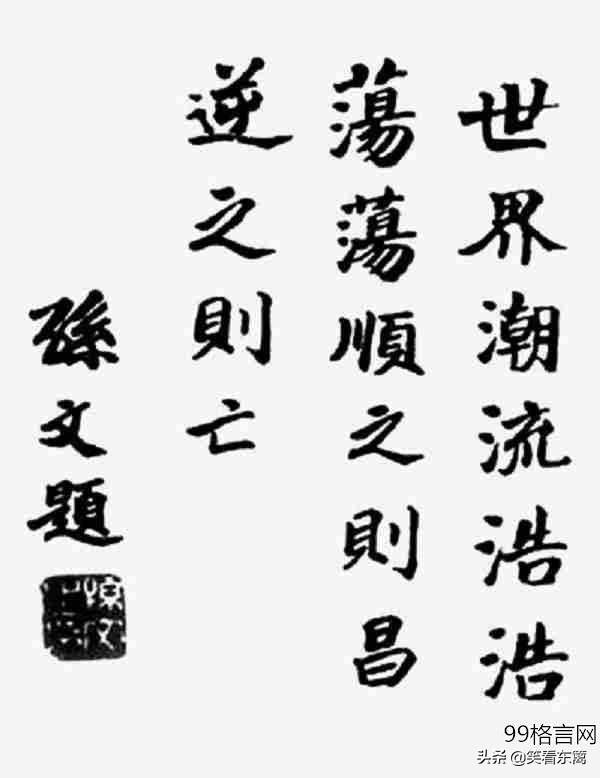 世界潮流浩浩
蕩蕩順之則昌
逆之則亡
孫文題
99格言网
头条 @笑看东篱